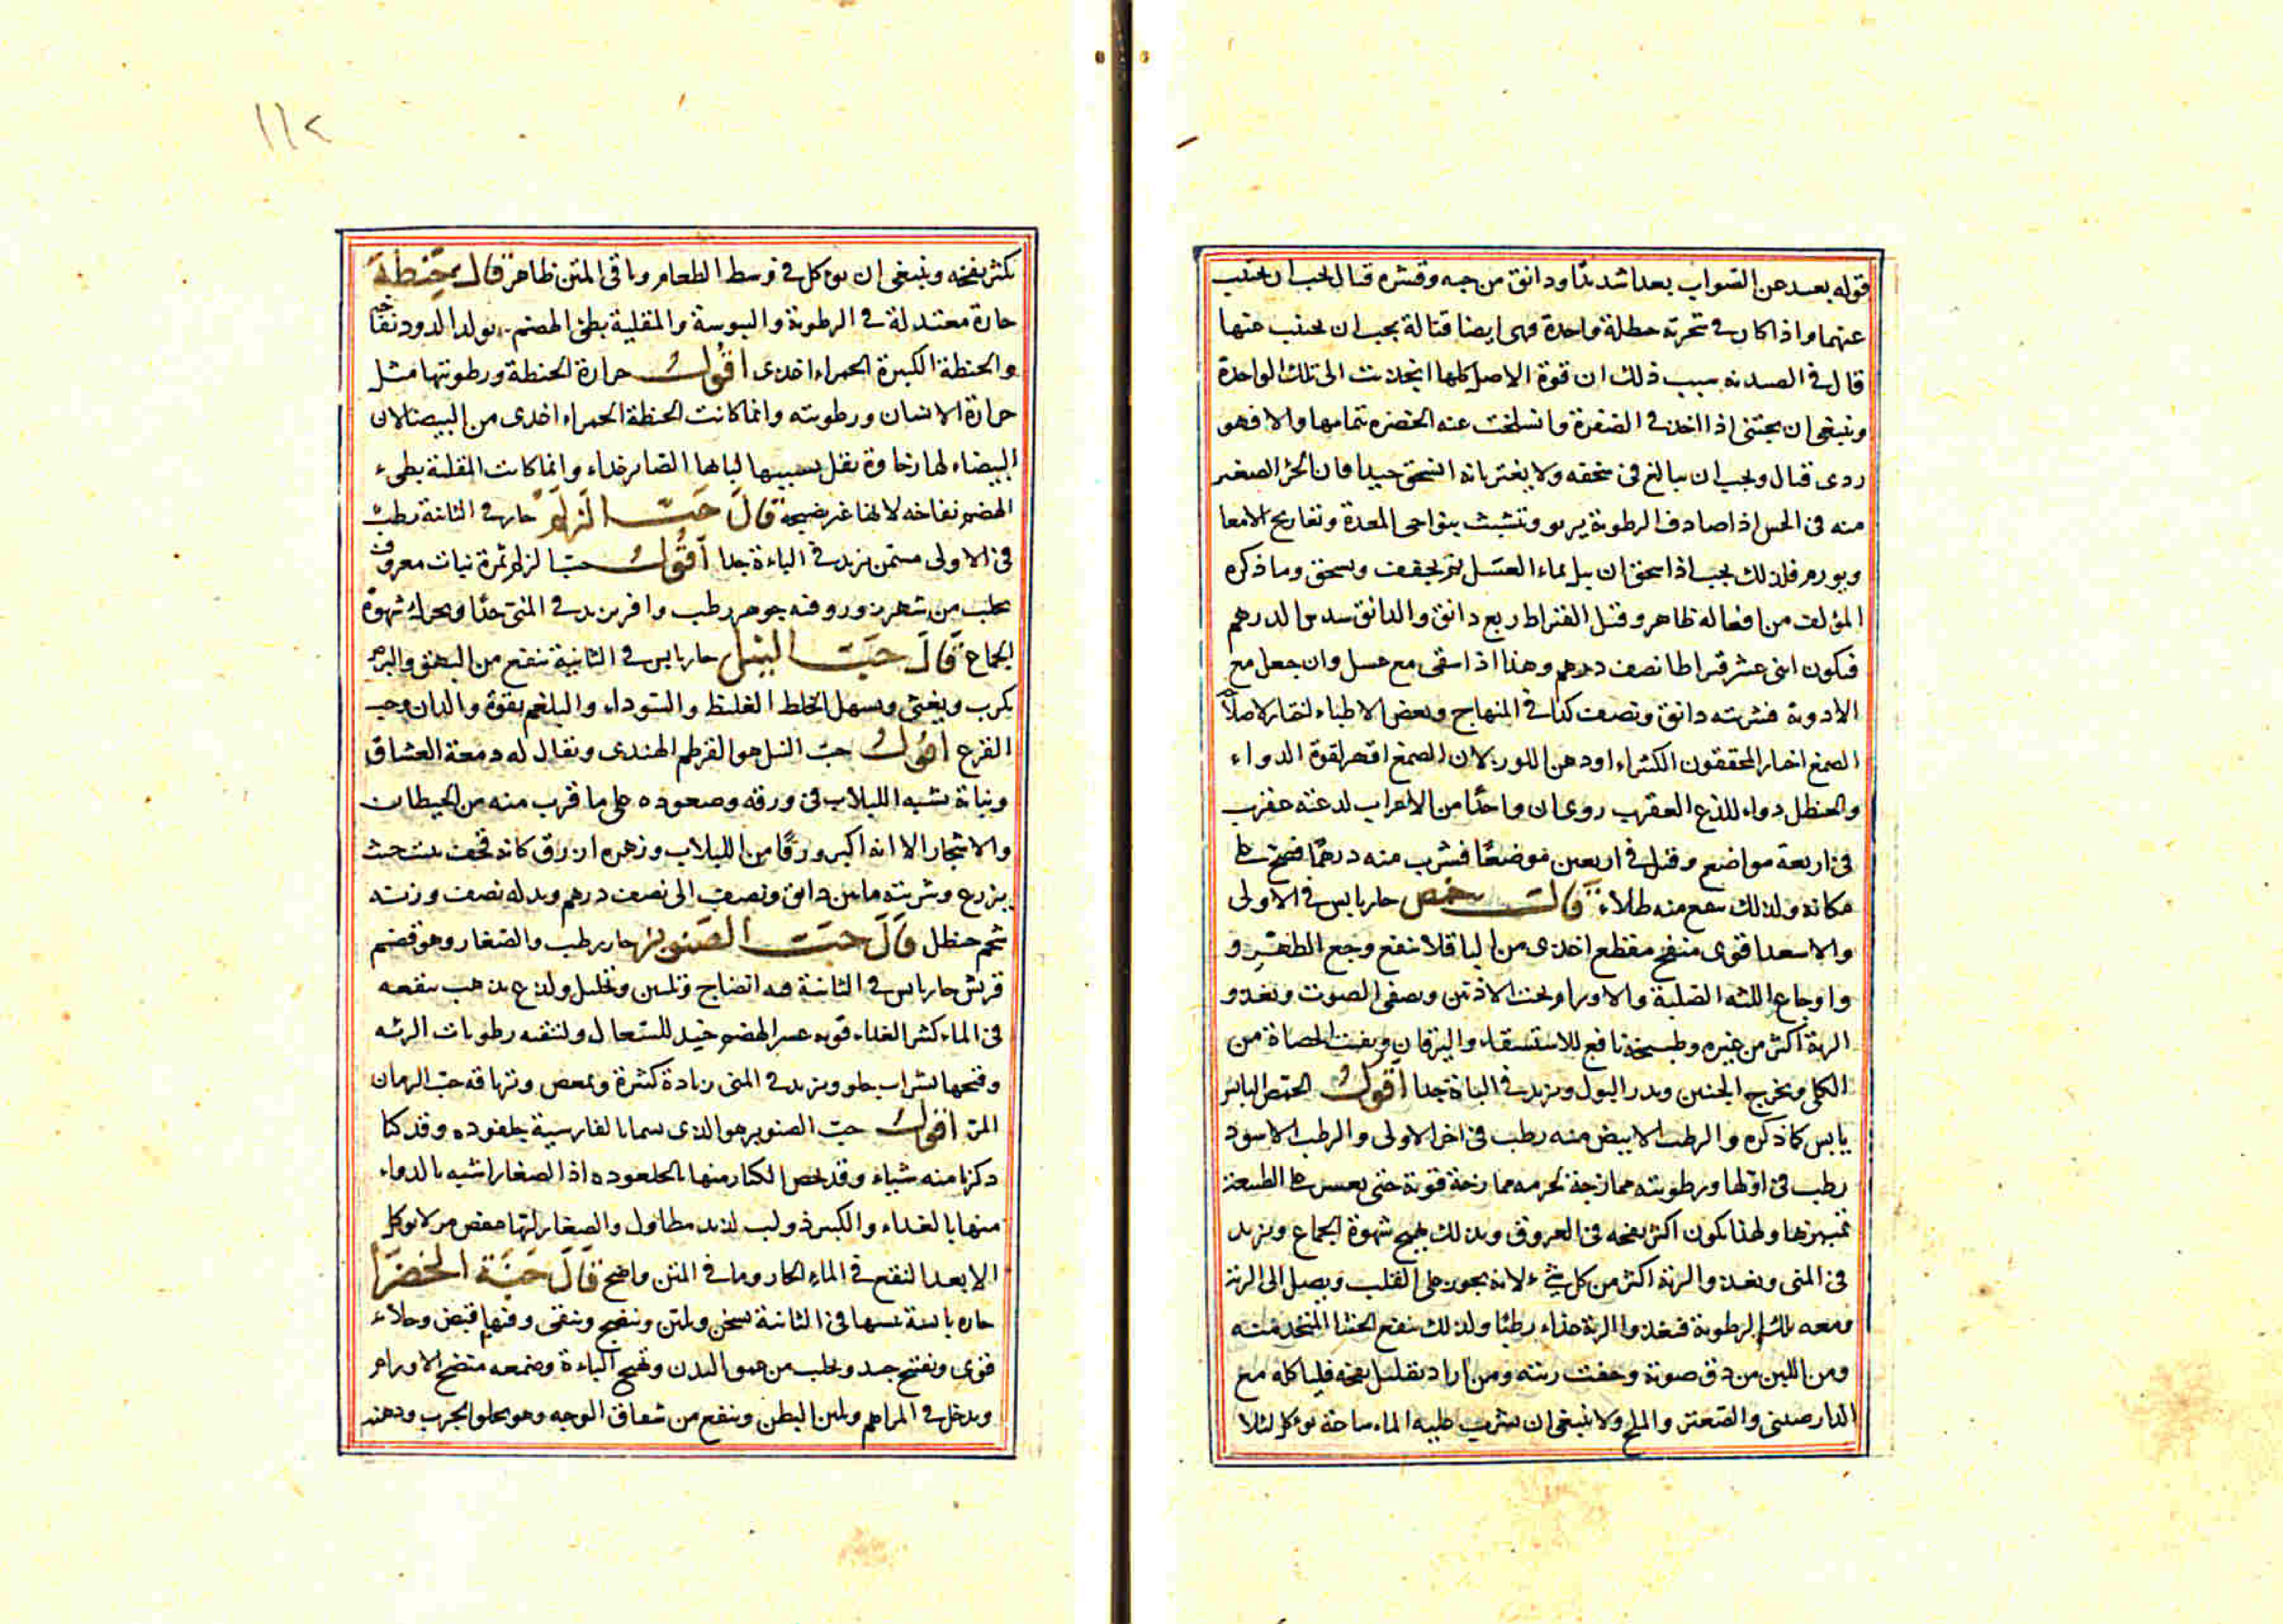 قوله بعيد عن الصواب بعدا شديدًا ودانق من حبه وقشره قتال يجب ان يجتنب
عنهما واذا كان في شجرته حنظلة واحدة فهي ايضا قتالة يجب ان يجتنب عنها
قال في الصيدنه سبب ذلك ان قوة الاصل كلها انجذبت الى تلك الواحدة
وينبغي ان يجتنى اذا اخذ في الصفرة وانسلخت عنه الخضرة بتمامها والا فهو
ردى قتال ويجب ان يبالغ في سحقه ولا يغتر بانه انسحق جيدا فان الجزء الصغير
منه في الحس اذا صادف الرطوبة يربو وتشبث بنواحى المعدة وتعاريج الامعا
ويورم فلذلك يجب اذا سحق ان يبل بماء العسل ثم يجفف ويسحق وما ذكره
المؤلف من افعاله ظاهر وقيل القيراط ربع دانق والدانق سدس الدرهم
فيكون اثنى عشر قيراطا نصف درهم وهذا اذا سقى مع عسل وان جعل مع
الادوية فشربته دانق ونصف كذا في المنهاج وبعض الاطباء
الصمغ اختار المحققون الكثيراء او دهن اللوز لان الصمغ اقهر لقوة الدواء
والحنظل دواء للذع العقرب روى ان واحدًا من الاعراب لدغته عقرب
في اربعة مواضع وقيل في اربعين موضعًا فشرب منه درهمًا فصح على
مكانه ولذلك ينفع منه طلاء قال حمص حار يابس في الاولى
والاسود اقوى منفخ مقطع اغذى من الباقلا ينفع وجع الظهر و
واوجاع اللثه الصلبة والاورام وتحت الاذنين ويصفى الصوت ويغذو
الرية اكثر من غيره وطبيخه نافع للاستسقاء واليرقان ويفتت الحصاة من
الكلى ويخرج الجنين ويدر البول ويزيد في الباءة جدا اقول الحمص اليابس
يابس كما ذكره والرطب الابيض منه رطب في اخر الاولى والرطب الاسود
رطب في اولها ورطوبته ممازجة لجرمه ممازجة قوية حتى يعسر على الطبيعة
تمييزها ولهذا يكون اكثر نفخه في العروق وبذلك يهيج شهوة الجماع ويزيد
في المنى ويغذو الرية اكثر من كل شيء لانه يجوز على القلب ويصل الى الرية
ومعه تلك الرطوبة فيغذو الرية غذاء رطبًا ولذلك ينفع الحسا المتخذ منه
ومن اللبن من دق صوته وجفت ريته ومن اراد تقليل نفخه فلياكله مع
الدارصينى والصعتر والملح ولا ينبغى ان يشرب عليه الماء ساعة يوكل لئلا
١١٢
يكثر نفخه وينبغى ان يوكل في وسط الطعام وباقى المتن ظاهر قال حنطة
حارة معتدلة في الرطوبة واليبوسة والمقلية بطئ الهضم يولد الدود نفاخه
والحنطة الكبيرة الحمراء اغذى اقول حرارة الحنطة ورطوبتها مثل
حرارة الانسان ورطوبته وانما كانت الحنطة الحمراء اغذى من البيضا لان
البيضاء لها رخاوة يقل بسببها لبابها الصاير غذاء وانما كانت المقلية بطىء
الهضم نفاخه لانها غير نضيجة قال حب الزلم حار في الثانية رطب
في الاولى مسمن يزيد في الباءة جدا اقول حب الزلم ثمرة نبات معروف
يجلب من شهرزور وفيه جوهر رطب وافر يزيد في المنى جدًا ويحرك شهوة
الجماع قال حب النيل حار يابس في الثانية ينفع من البهق والبرص
يكرب ويغثى ويسهل الخلط الغليظ والسوداء والبلغم بقوة والديدان وحب
القرع اقول حب النيل هو القرطم الهندى ويقال له دمعة العشاق
ونباته يشبه اللبلاب في ورقه وصعوده على ما قرب منه من الحيطان
والاشجار الا انه اكبر ورقًا من اللبلاب وزهره ازرق كانه قحف ينبت حيث
يزرع وشربته مابين دانق ونصف الى نصف درهم وبدله نصف وزنه
شحم حنظل قال حب الصنوبر حار رطب والصغار وهو قضم
قريش حار يابس في الثانية فيه انضاج وتليين وتحليل ولذع يذهب بنقعه
في الماء كثير الغذاء قويه عسر الهضم جيد للسعال ولتنقيه رطوبات الرئه
وقيحها بشراب حلو ويزيد في المنى زيادة كثيرة ويمغص وترياقه حب الرمان
المز اقول حب الصنوبر هو الذى يسما بالفارسية جلغوده وقد كنا
ذكرنا منه شياء وقد يخص الكبار منها بالجلغوده اذ الصغار اشبه بالدواء
منها بالغذاء والكبير ذو لب لذيذ مطاول والصغار لبها عفص مر لا يوكل
الا بعد النقع في الماء الحار وما في المتن واضح قال حبة الخضرا
حاره يابسة يبسها في الثانية يسخن ويلين وينضج وينقى وفيها قبض وجلاء
قوى وتفتيح جيد ويجلب من عمق البدن ويهيج الباءة وصمغه منضج الاورام
ويدخل في المراهم ويلين البطن وينفع من شقاق الوجه وهو يجلو الجرب ودهنه